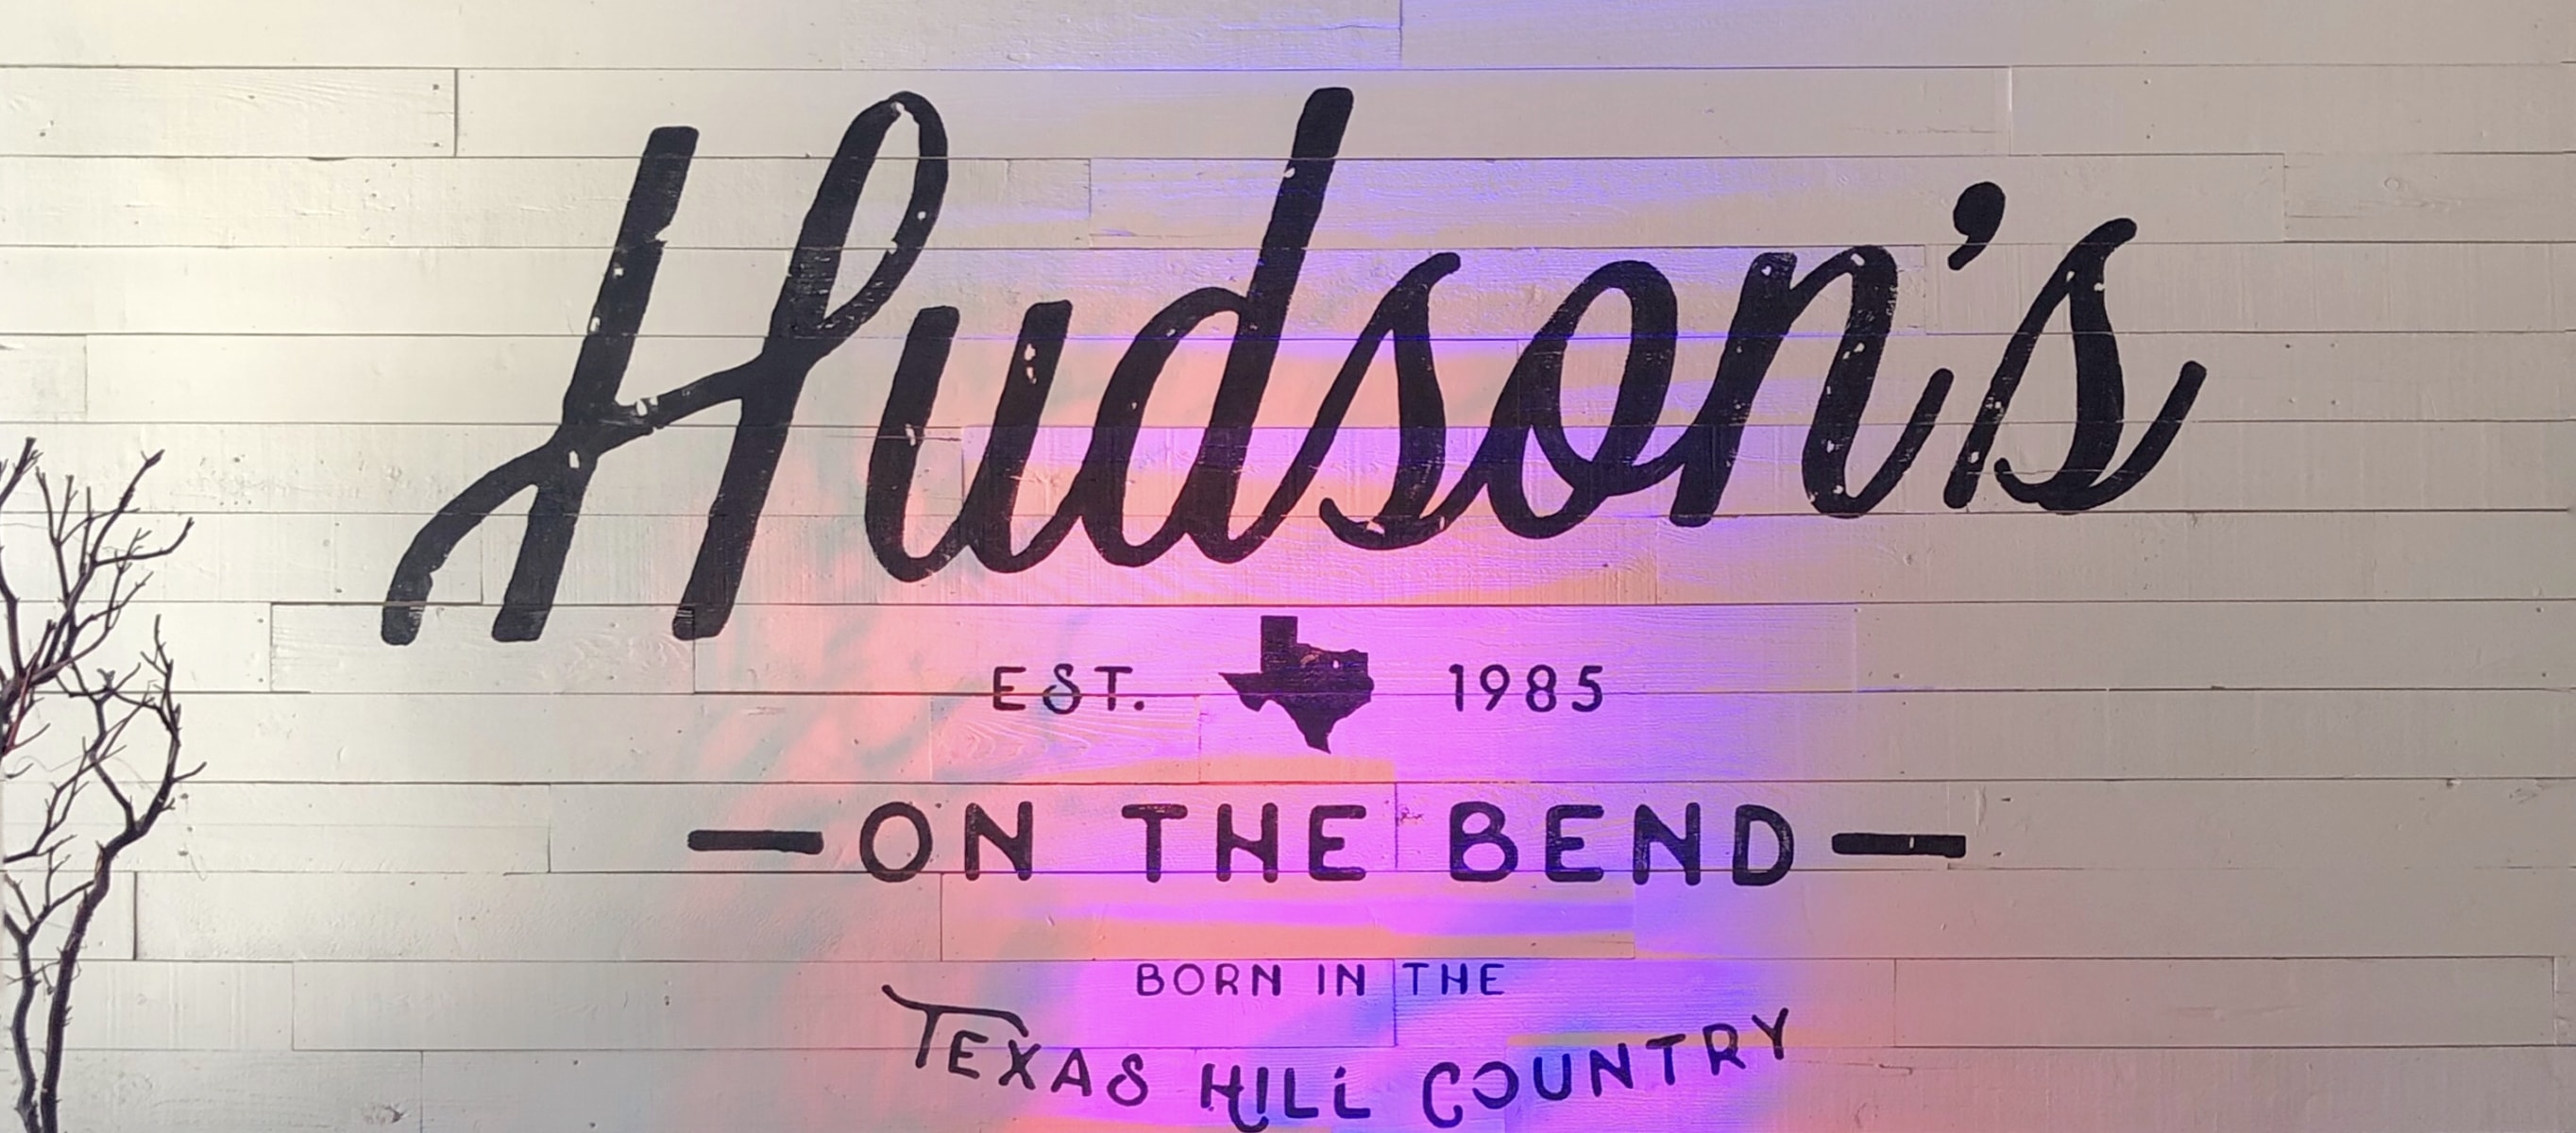 Hudson's
EST. 1985
—ON THE BEND—
BORN IN THE
TEXAS HILL COUNTRY